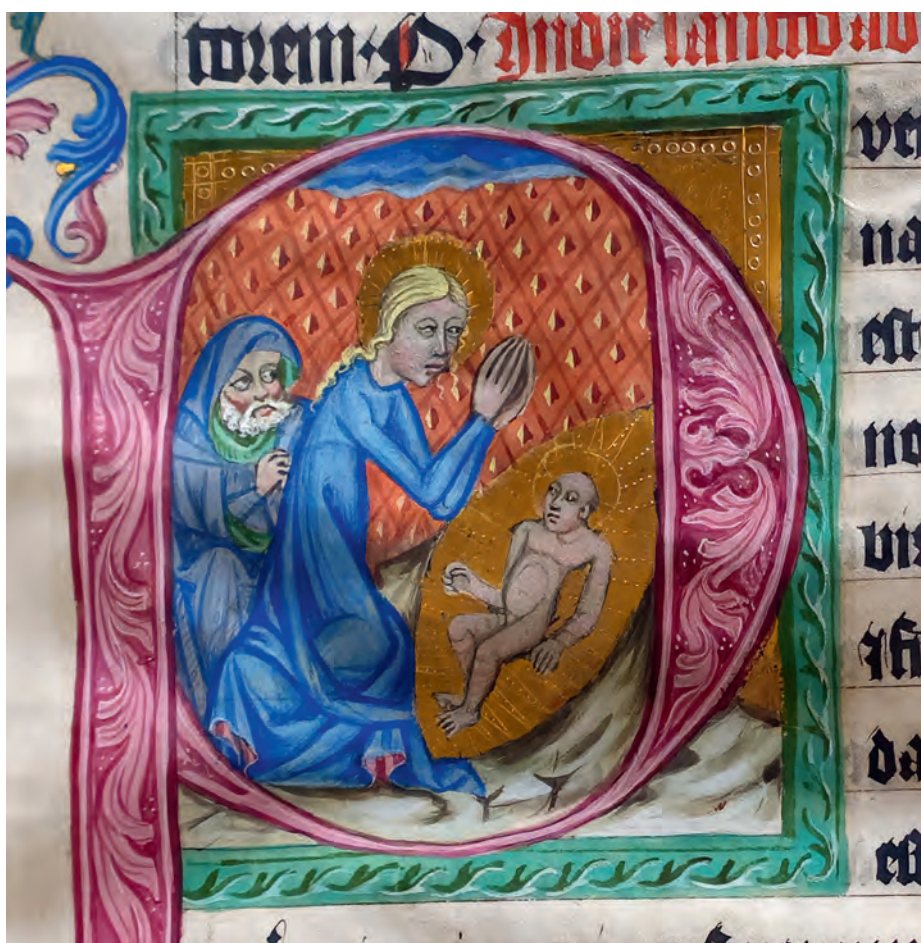 torem · P · In die sancto ad
P ve
na
est
no
bis
⁊ fi
da
est